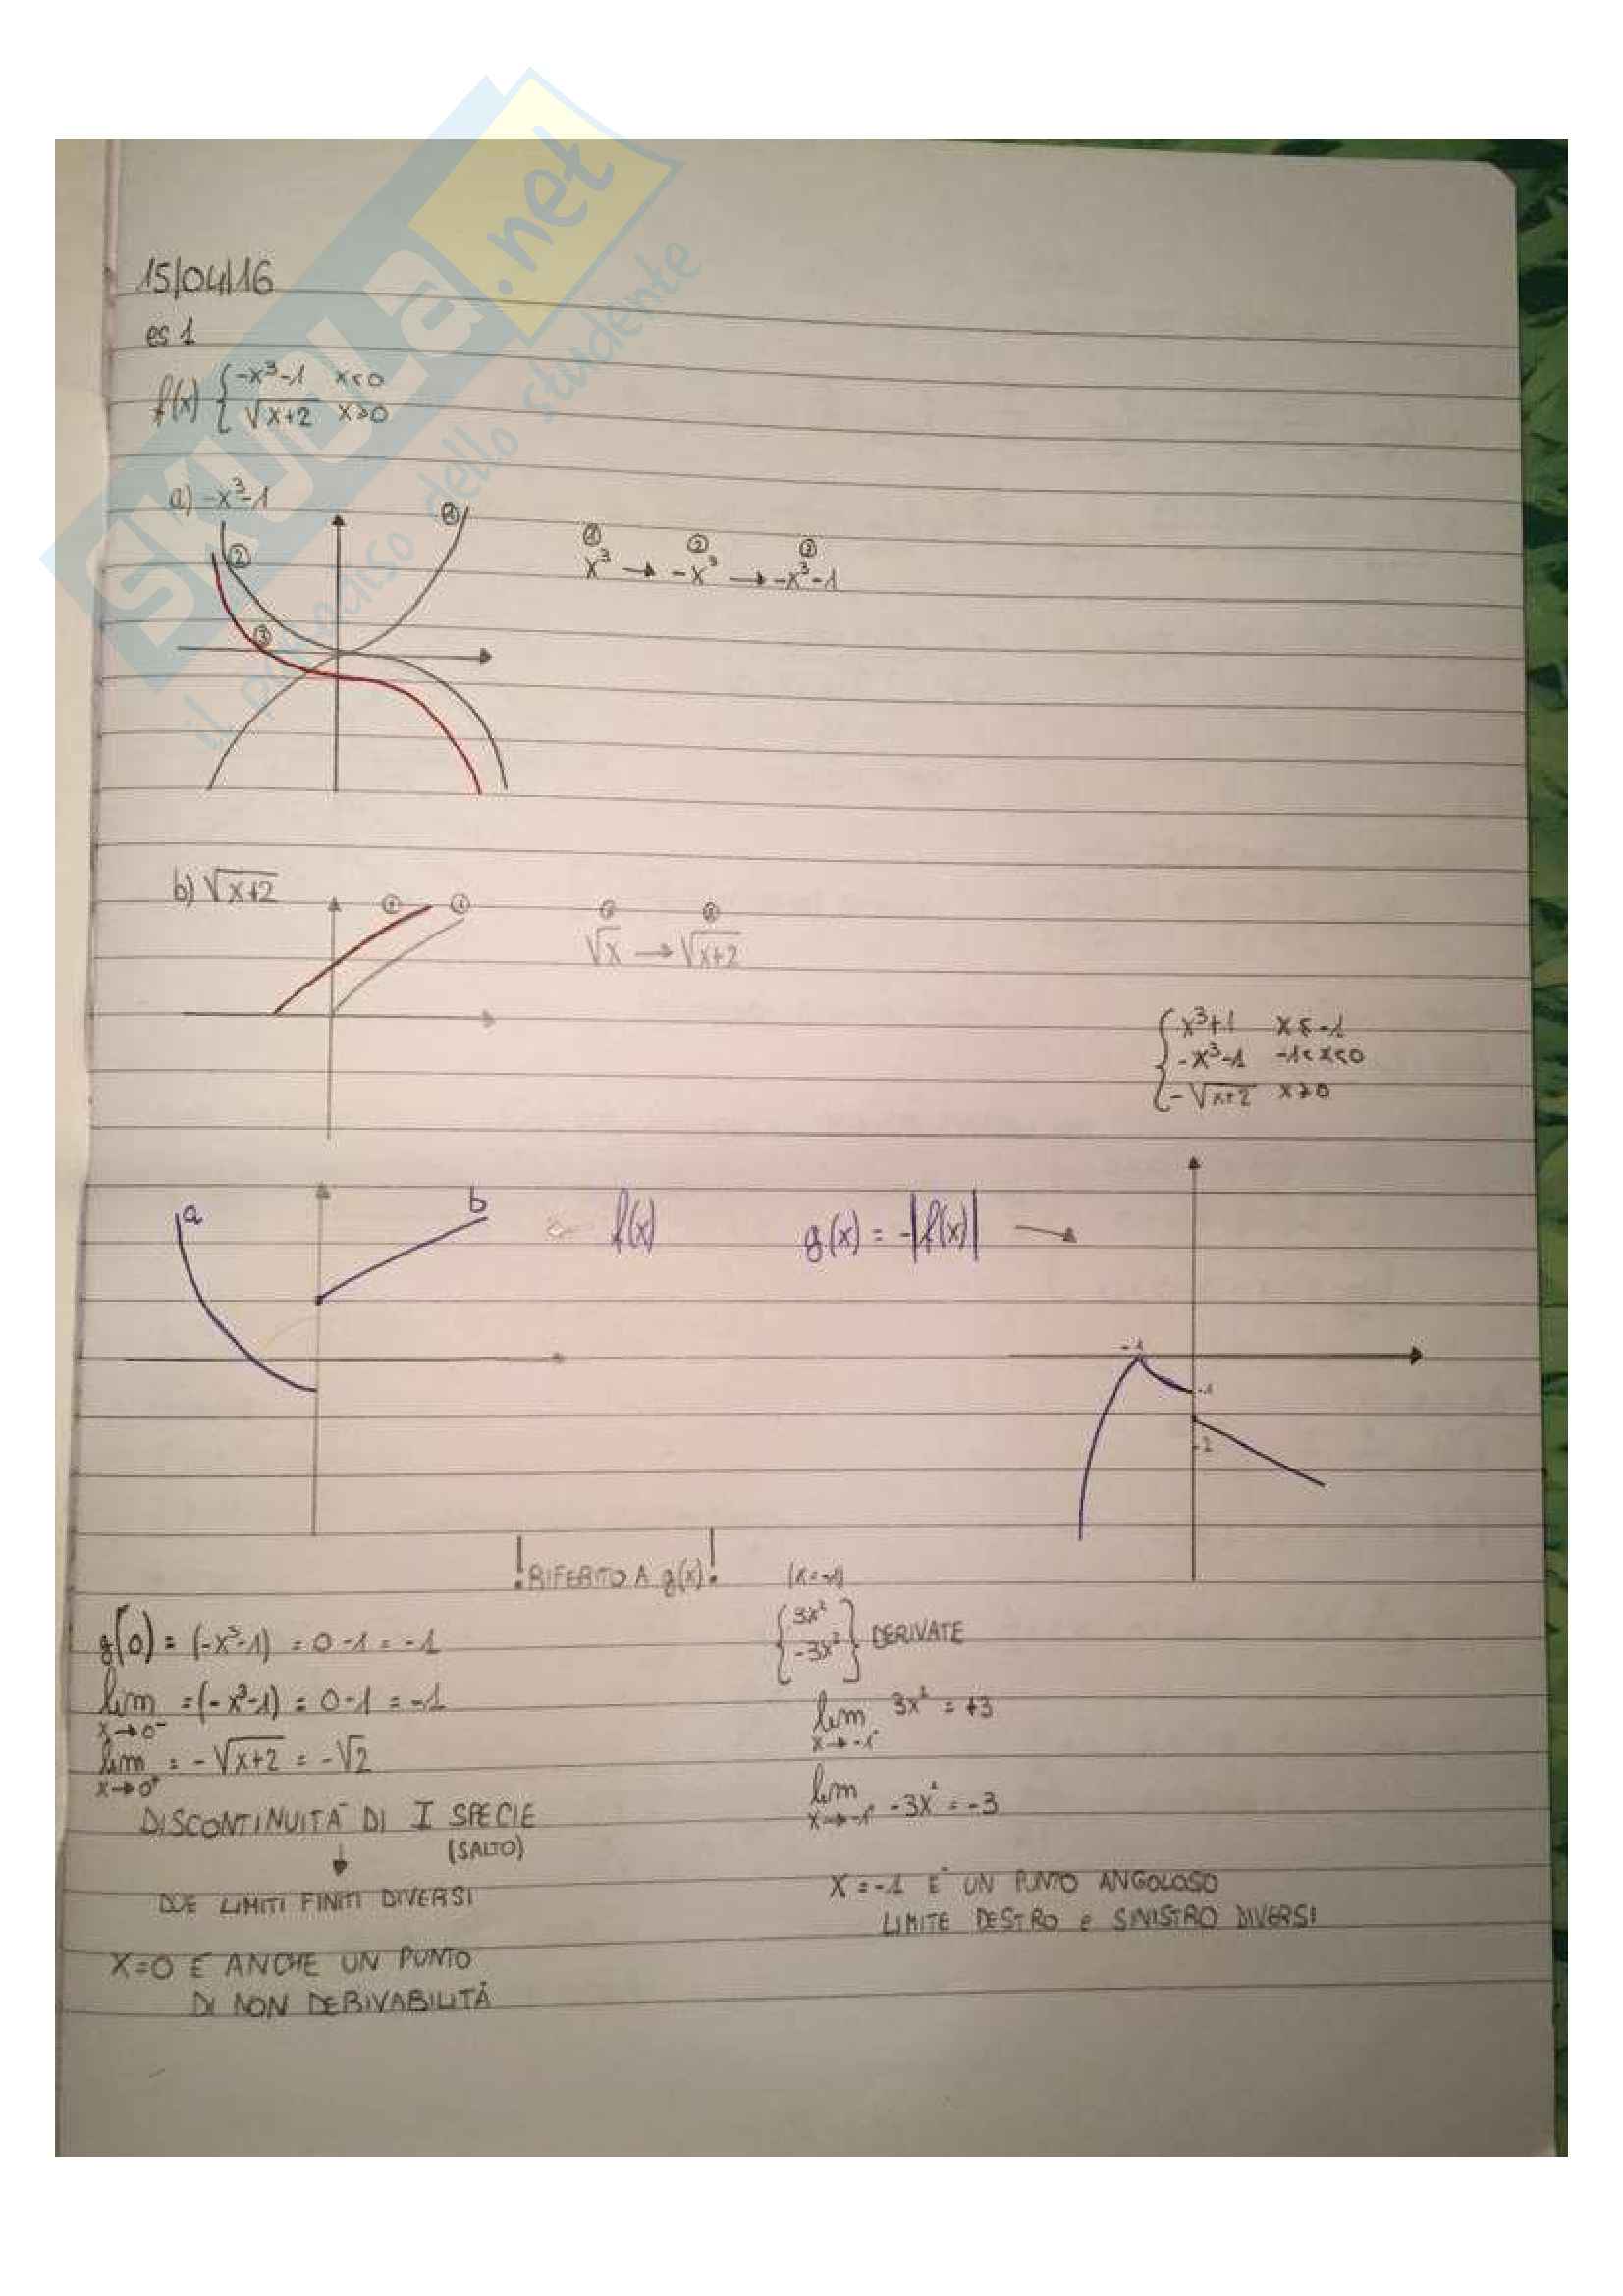 SKUOLA.net
il paradiso dello studente
15/04/16
es 1
f(x) { -x³-1 x<0
√x+2 x≥0
a) -x³-1
② ③
① ② ③
x³ → -x³ → -x³-1
b) √x+2
√x → √x+2
{ x³+1 x≤-1
-x³-1 -1<x<0
-√x+2 x≥0
a b f(x) g(x) = -|f(x)| →
-1
-1
-2
! RIFERITO A g(x) !
(x=-1)
{ 3x²
-3x² } DERIVATE
g(0) = (-x³-1) = 0-1 = -1
lim x→0⁻ = (-x³-1) = 0-1 = -1
lim x→0⁺ = -√x+2 = -√2
DISCONTINUITÀ DI I SPECIE
(SALTO)
DUE LIMITI FINITI DIVERSI
X=0 È ANCHE UN PUNTO
DI NON DERIVABILITÀ
lim x→-1 3x² = +3
lim x→-1 -3x² = -3
X=-1 È UN PUNTO ANGOLOSO
LIMITE DESTRO e SINISTRO DIVERSI